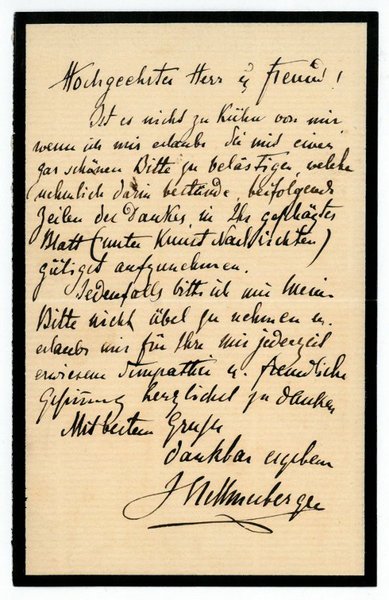 Hochgeehrter Herr u. Freund!
Ist es nicht zu kühn von mir,
wenn ich mir erlaube Sie mit einer
gar schönen Bitte zu belästigen, welche
nehmlich darin bestünde, beifolgende
Zeilen des Dankes, in Ihr geschätztes
Blatt (unter Kunst Nachrichten)
gütigst aufzunehmen.
Jedenfalls bitte ich mir meine
Bitte nicht übel zu nehmen u.
erlaube mir für Ihre mir jederzeit
erwiesene Simpathie u. freundliche
Gesinnung herzlichst zu danken
Mit bestem Gruße
dankbar ergebener
J